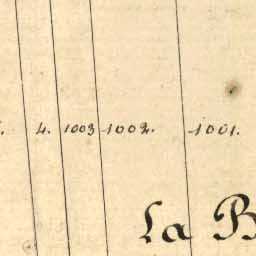 4. 1003 1002. 1001.
La B